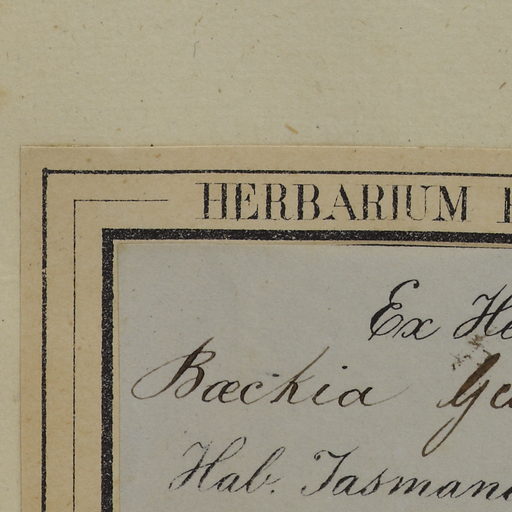 HERBARIUM
Ex
Bæckia
Hab. Tasman